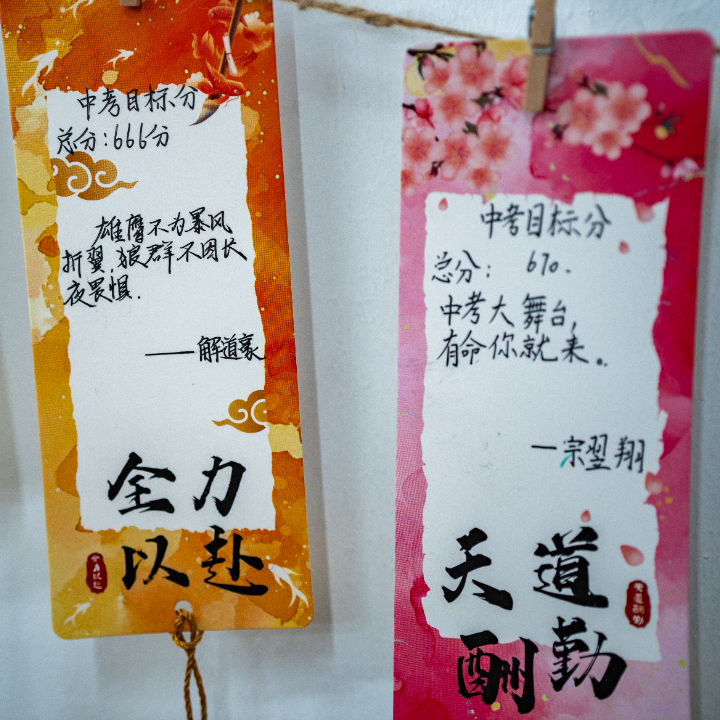 中考目标分
总分：666分
雄鹰不为暴风
折翼，狼群不因长
夜畏惧．
——解道豪
全力
以赴
全力以赴
中考目标分
总分： 670．
中考大舞台，
有命你就来。
—宗翌翔
天道
酬勤
天道酬勤